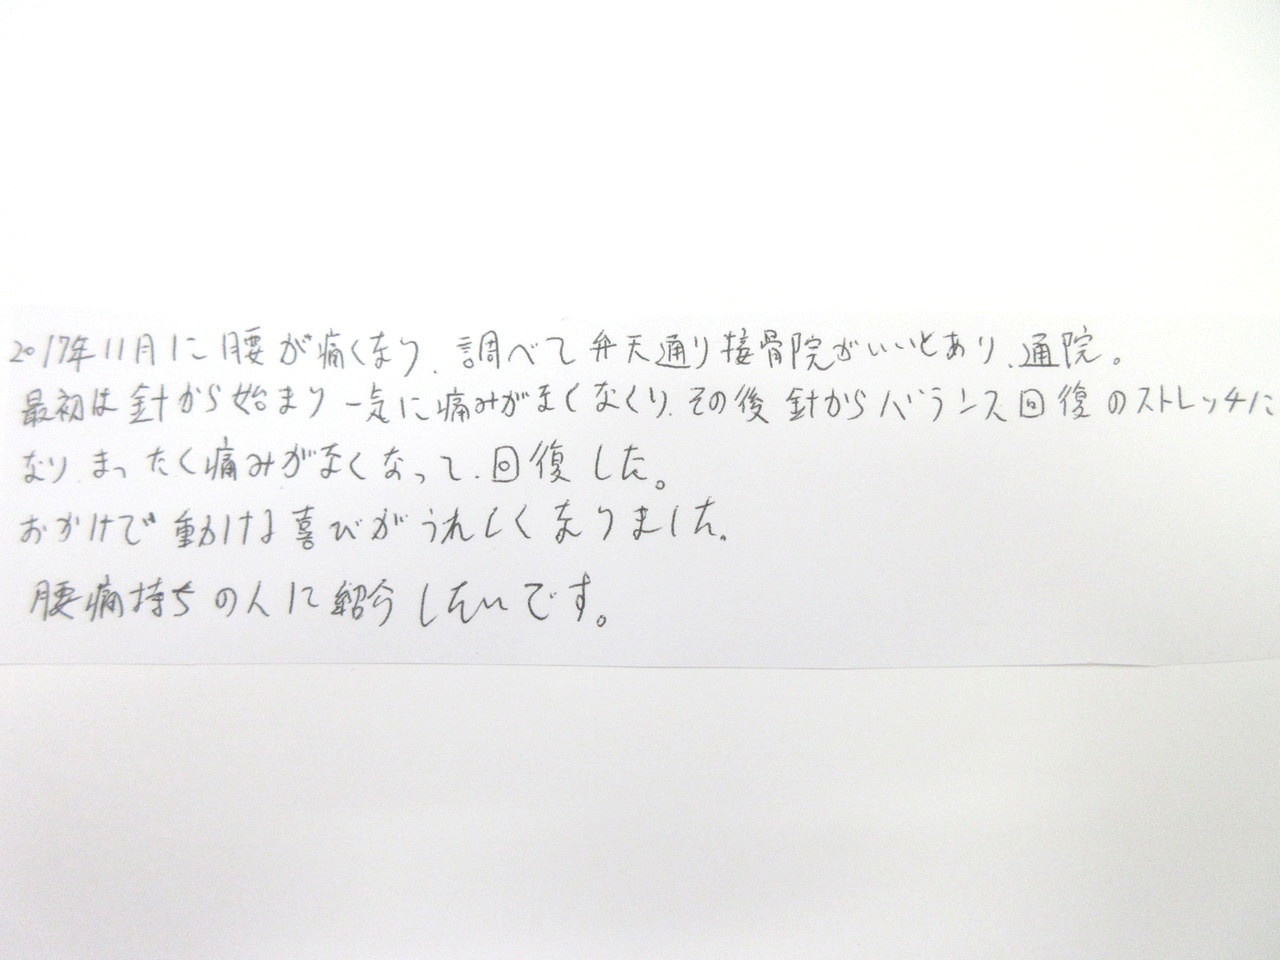 2017年11月に腰が痛くなり、調べて弁天通り接骨院がいいとあり、通院。
最初は針から始まり一気に痛みがなくなくり、その後針からバランス回復のストレッチに
なり、まったく痛みがなくなって、回復した。
おかけで動ける喜びがうれしくなりました。
腰痛持ちの人に紹介したいです。